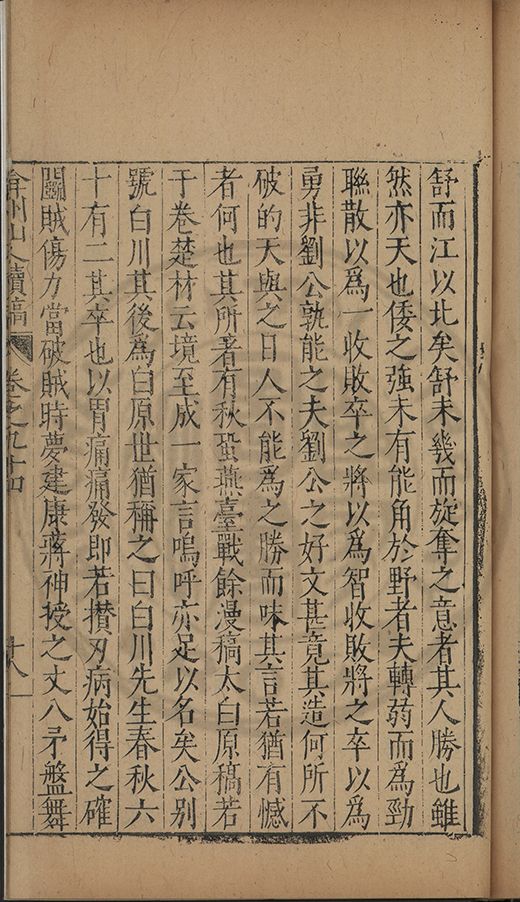 舒而江以北矣舒未幾而旋奪之意者其人勝也雖
然亦天也倭之強未有能角於野者夫轉弱而爲勁
聯散以爲一收敗卒之將以爲智收敗將之卒以爲
勇非劉公孰能之夫劉公之好文甚竟其造何所不
破的天與之日人不能爲之勝而味其言若猶有憾
者何也其所著有秋蛩燕臺戰餘漫稿太白原稿若
干卷楚材云境至成一家言嗚呼亦足以名矣公別
號白川其後爲白原世猶稱之曰白川先生春秋六
十有二其卒也以胃痛痛發即若攅刃病始得之確
鬬賊傷力當破賊時夢建康蔣神授之丈八矛盤舞
弇州山人續稿 卷之九十四 十八